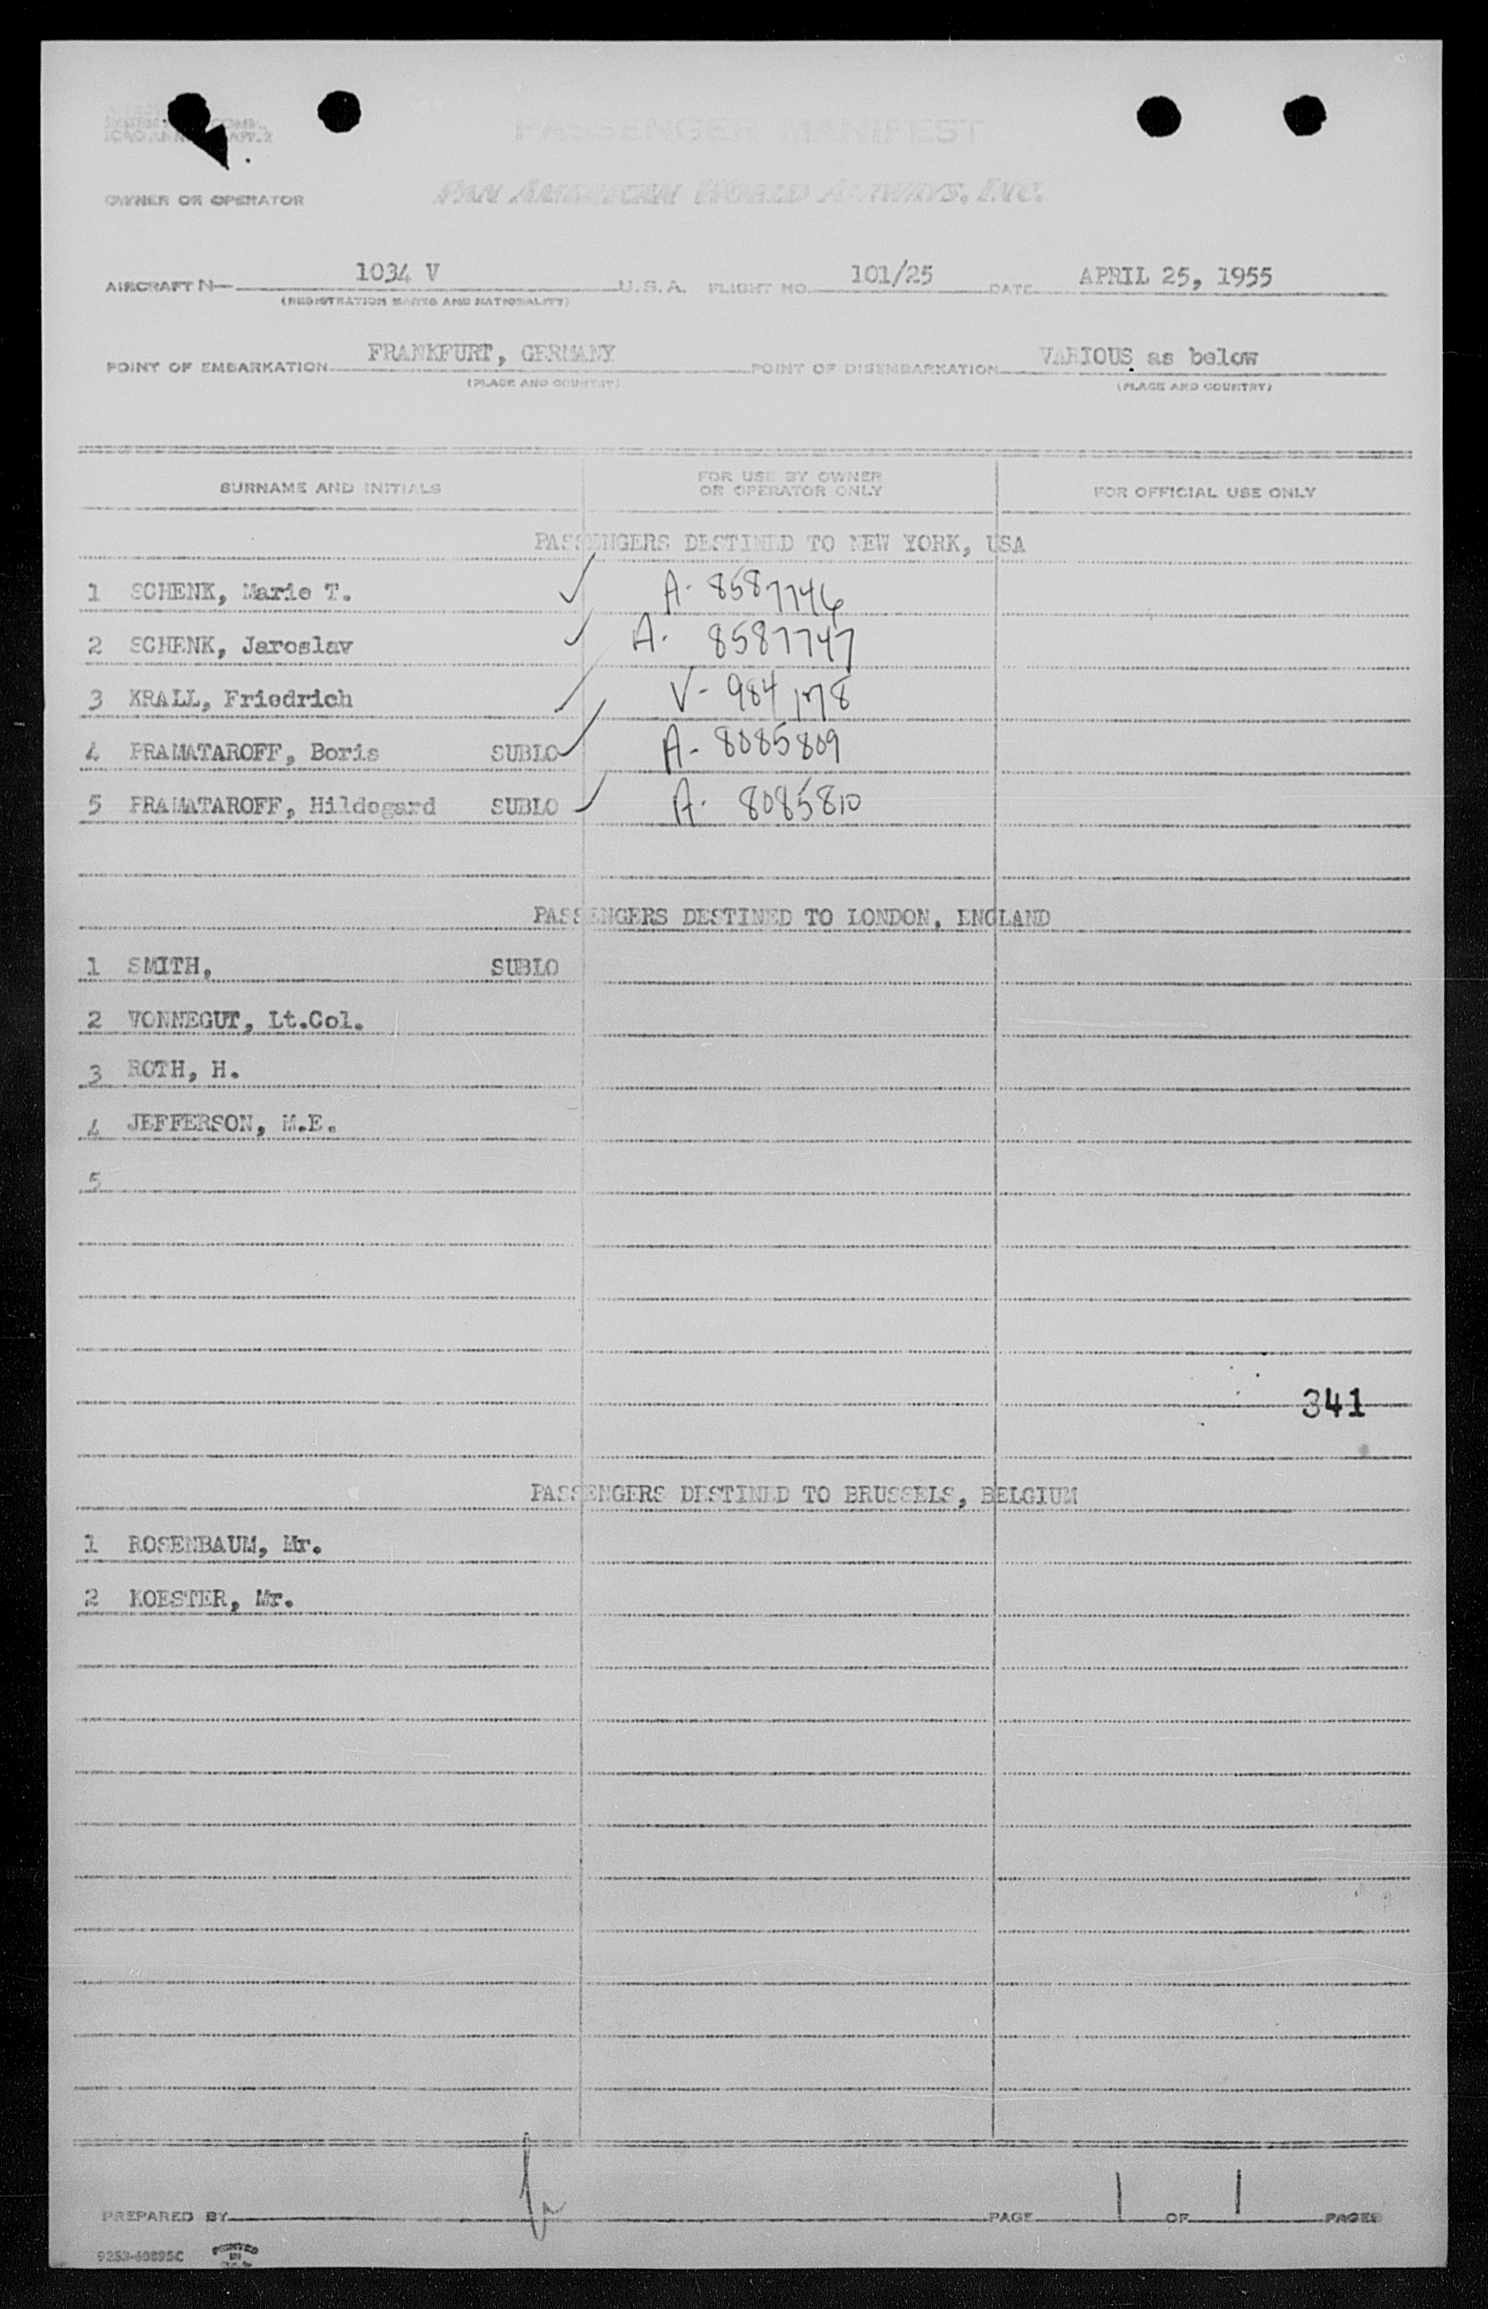 PASSENGER MANIFEST
OWNER OR OPERATOR PAN AMERICAN WORLD AIRWAYS, INC.
AIRCRAFT N 1034 V U.S.A. FLIGHT NO. 101/25 DATE APRIL 25, 1955
(REGISTRATION MARKS AND NATIONALITY)
POINT OF EMBARKATION FRANKFURT, GERMANY POINT OF DISEMBARKATION VARIOUS as below
(PLACE AND COUNTRY) (PLACE AND COUNTRY)
SURNAME AND INITIALS FOR USE BY OWNER OR OPERATOR ONLY FOR OFFICIAL USE ONLY
PASSENGERS DESTINED TO NEW YORK, USA
1 SCHENK, Marie T. ✓ A- 8587746
2 SCHENK, Jaroslav ✓ A- 8587747
3 KRALL, Friedrich ✓ V- 984178
4 PRAMATAROFF, Boris SUBLO ✓ A- 8085809
5 PRAMATAROFF, Hildegard SUBLO ✓ A- 8085810
PASSENGERS DESTINED TO LONDON, ENGLAND
1 SMITH, SUBLO
2 VONNEGUT, Lt.Col.
3 ROTH, H.
4 JEFFERSON, M.E.
5
341
PASSENGERS DESTINED TO BRUSSELS, BELGIUM
1 ROSENBAUM, Mr.
2 KOESTER, Mr.
PREPARED BY PAGE 1 OF 1 PAGES
PRINTED
IN